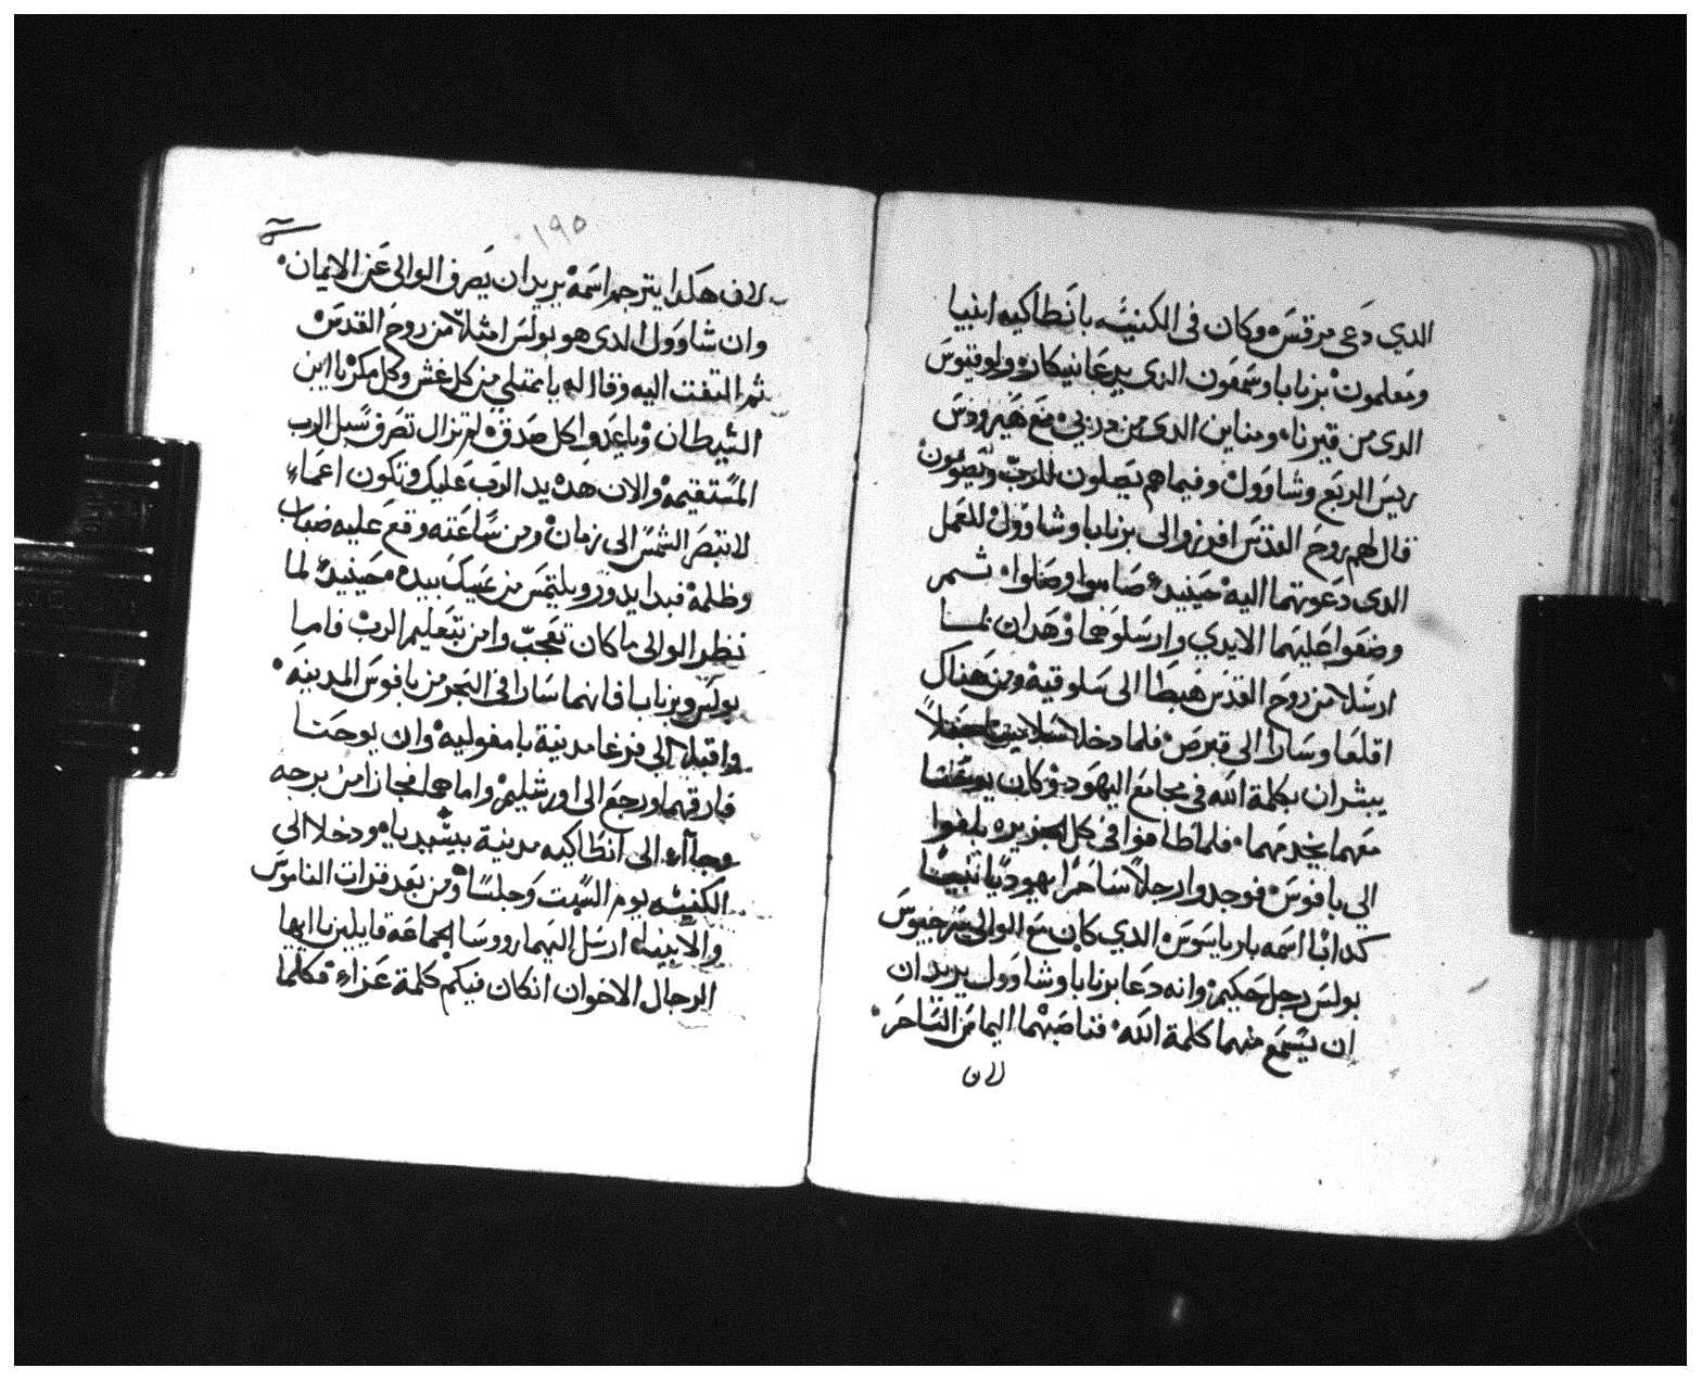 الدي دعي مرقس وكان في الكنيسه بانطاكيه انبيا
ومعلمون برنابا وشمعون الدى يدعا نيكارو ولوقيوس
الدى من قيرناه ومناين الدى من دربي مع هيرودس
ريس الربع وشاوول وفيما هم يصلون للرب ويصومون
قال لهم روح القدس افرزوا لى برنابا وشاوول للعمل
الدى دعوتهما اليه حينيد صاموا وصلوا ثمر
وضعوا عليهما الايدي وارسلوهما وهدان لما
ارسلا من روح القدس هبطا الى سلوقيه ومن هناك
اقلعا وسارا الى قبرص فلما دخلا جعلا
يبشران بكلمة الله في مجامع اليهود وكان يوحنا
معهما يخدمهما فلما طافوا في كل الجزيره بلغوا
الى بافوس فوجدوا رجلا ساحرا يهوديا نبيا
كدابا اسمه بارياسوس الدي كان مع الوالى سرجيوس
بولس رجل حكيم وانه دعا برنابا وشاوول يريد ان
ان يسمع منهما كلمة الله فناصبهما اليماس الساحر
لان
١٩٥
لان هكدا يترجم اسمه يريد ان يصرف الوالى عن الايمان
وان شاوول الدى هو بولس امتلا من روح القدس
ثم التفت اليه وقال له يا ممتلي من كل غش وكل مكر يا ابن
الشيطان ويا عدوا كل صدق لم تزال تصرف سبل الرب
المستقيمه والان هده يد الرب عليك وتكون اعماء
لا تبصر الشمس الى زمان ومن ساعته وقع عليه ضباب
وظلمه فبدا يدور ويلتمس من يمسك بيده حينيد لما
نظر الوالى ما كان تعجب وامن بتعليم الرب فاما
بولس وبرنابا فانهما سارا في البحر من بافوس المدينه
واقبلا الى فرغا مدينة بامفوليه وان يوحنا
فارقهما ورجع الى اورشليم واما هما فجازا من برجه
وجاآ الى انطاكيه مدينة بيشيدياه ودخلا الى
الكنيسه يوم السبت وجلسا ومن بعد قرات الناموس
والانبياء ارسل اليهما روسا الجماعه قايلين يا ايها
الرجال الاخوان ان كان فيكم كلمة عزاء فكلما